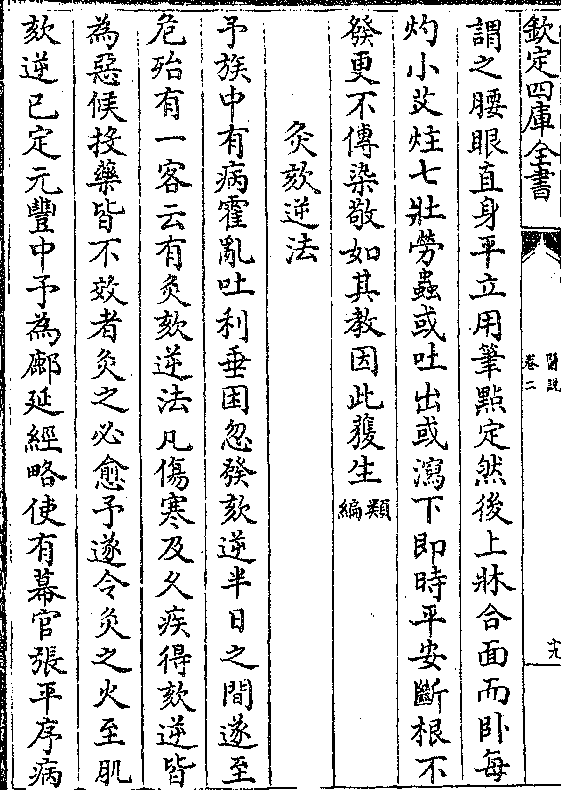 欽定四庫全書
醫說
卷二
十九
謂之腰眼直身平立用筆點定然後上牀合面而卧每
灼小艾炷七壯勞蟲或吐出或瀉下即時平安斷根不
發更不傳染敬如其教因此獲生類編
灸欬逆法
予族中有病霍亂吐利垂困忽發欬逆半日之間遂至
危殆有一客云有灸欬逆法凡傷寒及久疾得欬逆皆
為惡候投藥皆不效者灸之必愈予遂令灸之火至肌
欬逆已定元豐中予為鄜延經略使有幕官張平序病